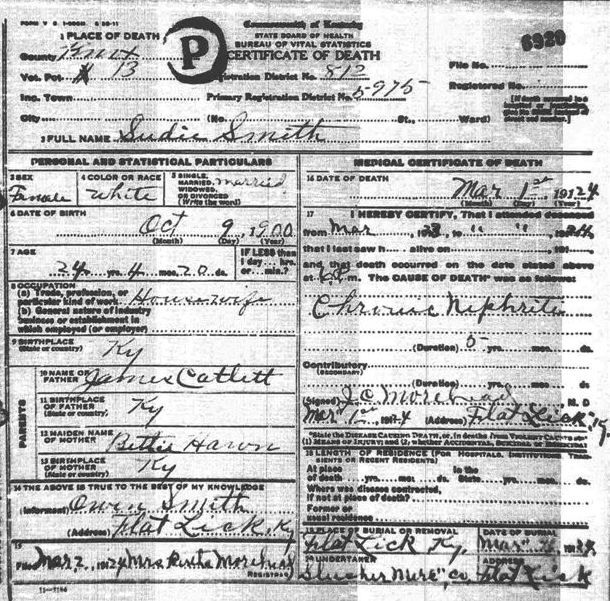 FORM V. S. 1
1 PLACE OF DEATH
Commonwealth of Kentucky
STATE BOARD OF HEALTH
BUREAU OF VITAL STATISTICS
CERTIFICATE OF DEATH
P
6920
County Knox
Vot. Pct. # 13
Registration District No. 812
File No.
Inc. Town
Primary Registration District No. 5975
Registered No.
City (No. St., Ward)
[If death occurred in a
2 FULL NAME Sudie Smith
PERSONAL AND STATISTICAL PARTICULARS
3 SEX
Female
4 COLOR OR RACE
White
5 SINGLE, MARRIED, WIDOWED, OR DIVORCED (Write the word)
Married
6 DATE OF BIRTH
Oct 9, 1900
(Month) (Day) (Year)
7 AGE
24 yrs. 4 mos. 20 ds.
IF LESS than 1 day... hrs. or... min.?
8 OCCUPATION
(a) Trade, profession, or particular kind of work Housewife
(b) General nature of industry
business or establishment in
which employed (or employer)
9 BIRTHPLACE
(State or country) Ky
PARENTS
10 NAME OF FATHER James Catlett
11 BIRTHPLACE OF FATHER (State or country) Ky
12 MAIDEN NAME OF MOTHER Bettie
13 BIRTHPLACE OF MOTHER (State or country) Ky
14 THE ABOVE IS TRUE TO THE BEST OF MY KNOWLEDGE
(Informant) Owen Smith
(Address) Flat Lick, Ky
15
Filed Mar 2, 1924 Mrs
REGISTRAR
11-7184
MEDICAL CERTIFICATE OF DEATH
16 DATE OF DEATH
Mar 1st, 1924
(Month) (Day) (Year)
17 I HEREBY CERTIFY, That I attended deceased
from Mar
that I last saw h alive on 191
and that death occurred on the date stated above
at m. The CAUSE OF DEATH* was as follows:
Chronic Niphritis
(Duration) 5 yrs. mos. ds.
Contributory
(SECONDARY)
(Duration) yrs. mos. ds.
(Signed) J.C. M. D
Mar 1st 1924 (Address) Flat Lick, Ky.
*State the DISEASE CAUSING DEATH, or, in deaths from VIOLENT CAUSES
(1) MEANS OF INJURY; and (2) whether ACCIDENTAL,
18 LENGTH OF RESIDENCE (FOR HOSPITALS, INSTITUTIONS, TRANSIENTS OR RECENT RESIDENTS)
At place of death yrs. mos. ds. In the State yrs. mos. ds.
Where was disease contracted,
if not at place of death?
Former or
usual residence
19 PLACE OF BURIAL OR REMOVAL
Flat Lick Ky.
DATE OF BURIAL
Mar 1924
20 UNDERTAKER
ADDRESS
Co Flat Lick